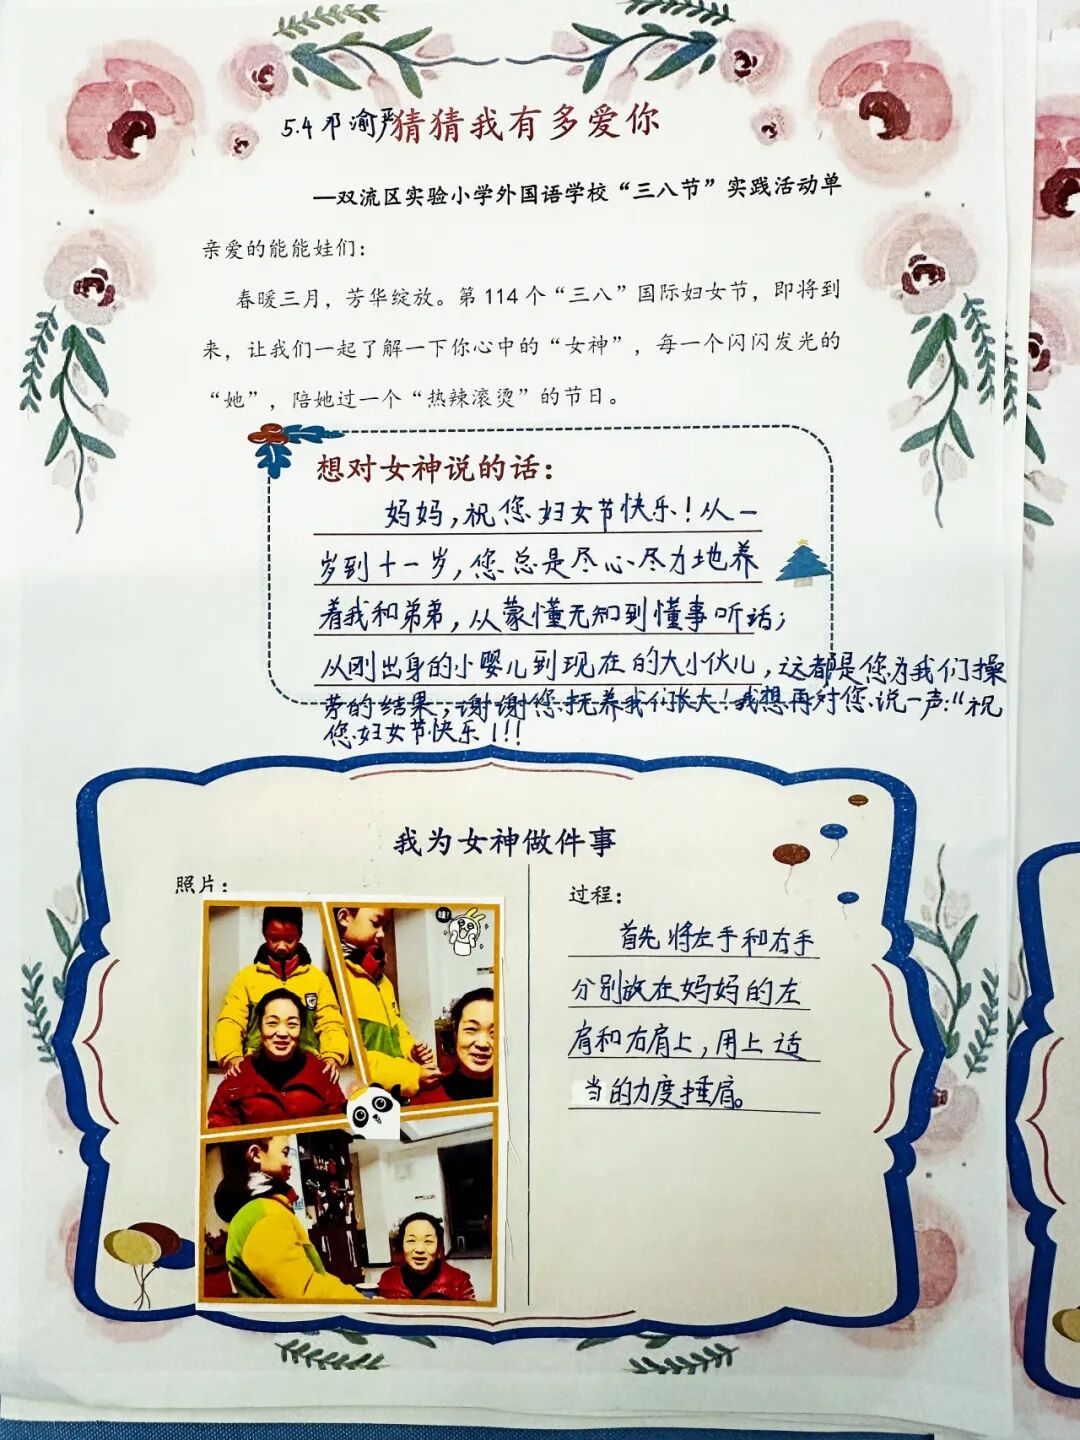 5.4 邓渝严 猜猜我有多爱你
—双流区实验小学外国语学校“三八节”实践活动单
亲爱的能能娃们：
春暖三月，芳华绽放。第 114 个“三八”国际妇女节，即将到
来，让我们一起了解一下你心中的“女神”，每一个闪闪发光的
“她”，陪她过一个“热辣滚烫”的节日。
想对女神说的话：
妈妈，祝您妇女节快乐！从一
岁到十一岁，您总是尽心尽力地养
着我和弟弟，从蒙懂无知到懂事听话；
从刚出身的小婴儿到现在的大小伙儿，这都是您为我们操
劳的结果，谢谢您抚养我们长大！我想再对您说一声：“祝
您妇女节快乐！！！
我为女神做件事
照片：
过程：
首先将左手和右手
分别放在妈妈的左
肩和右肩上，用上适
当的力度捶肩。